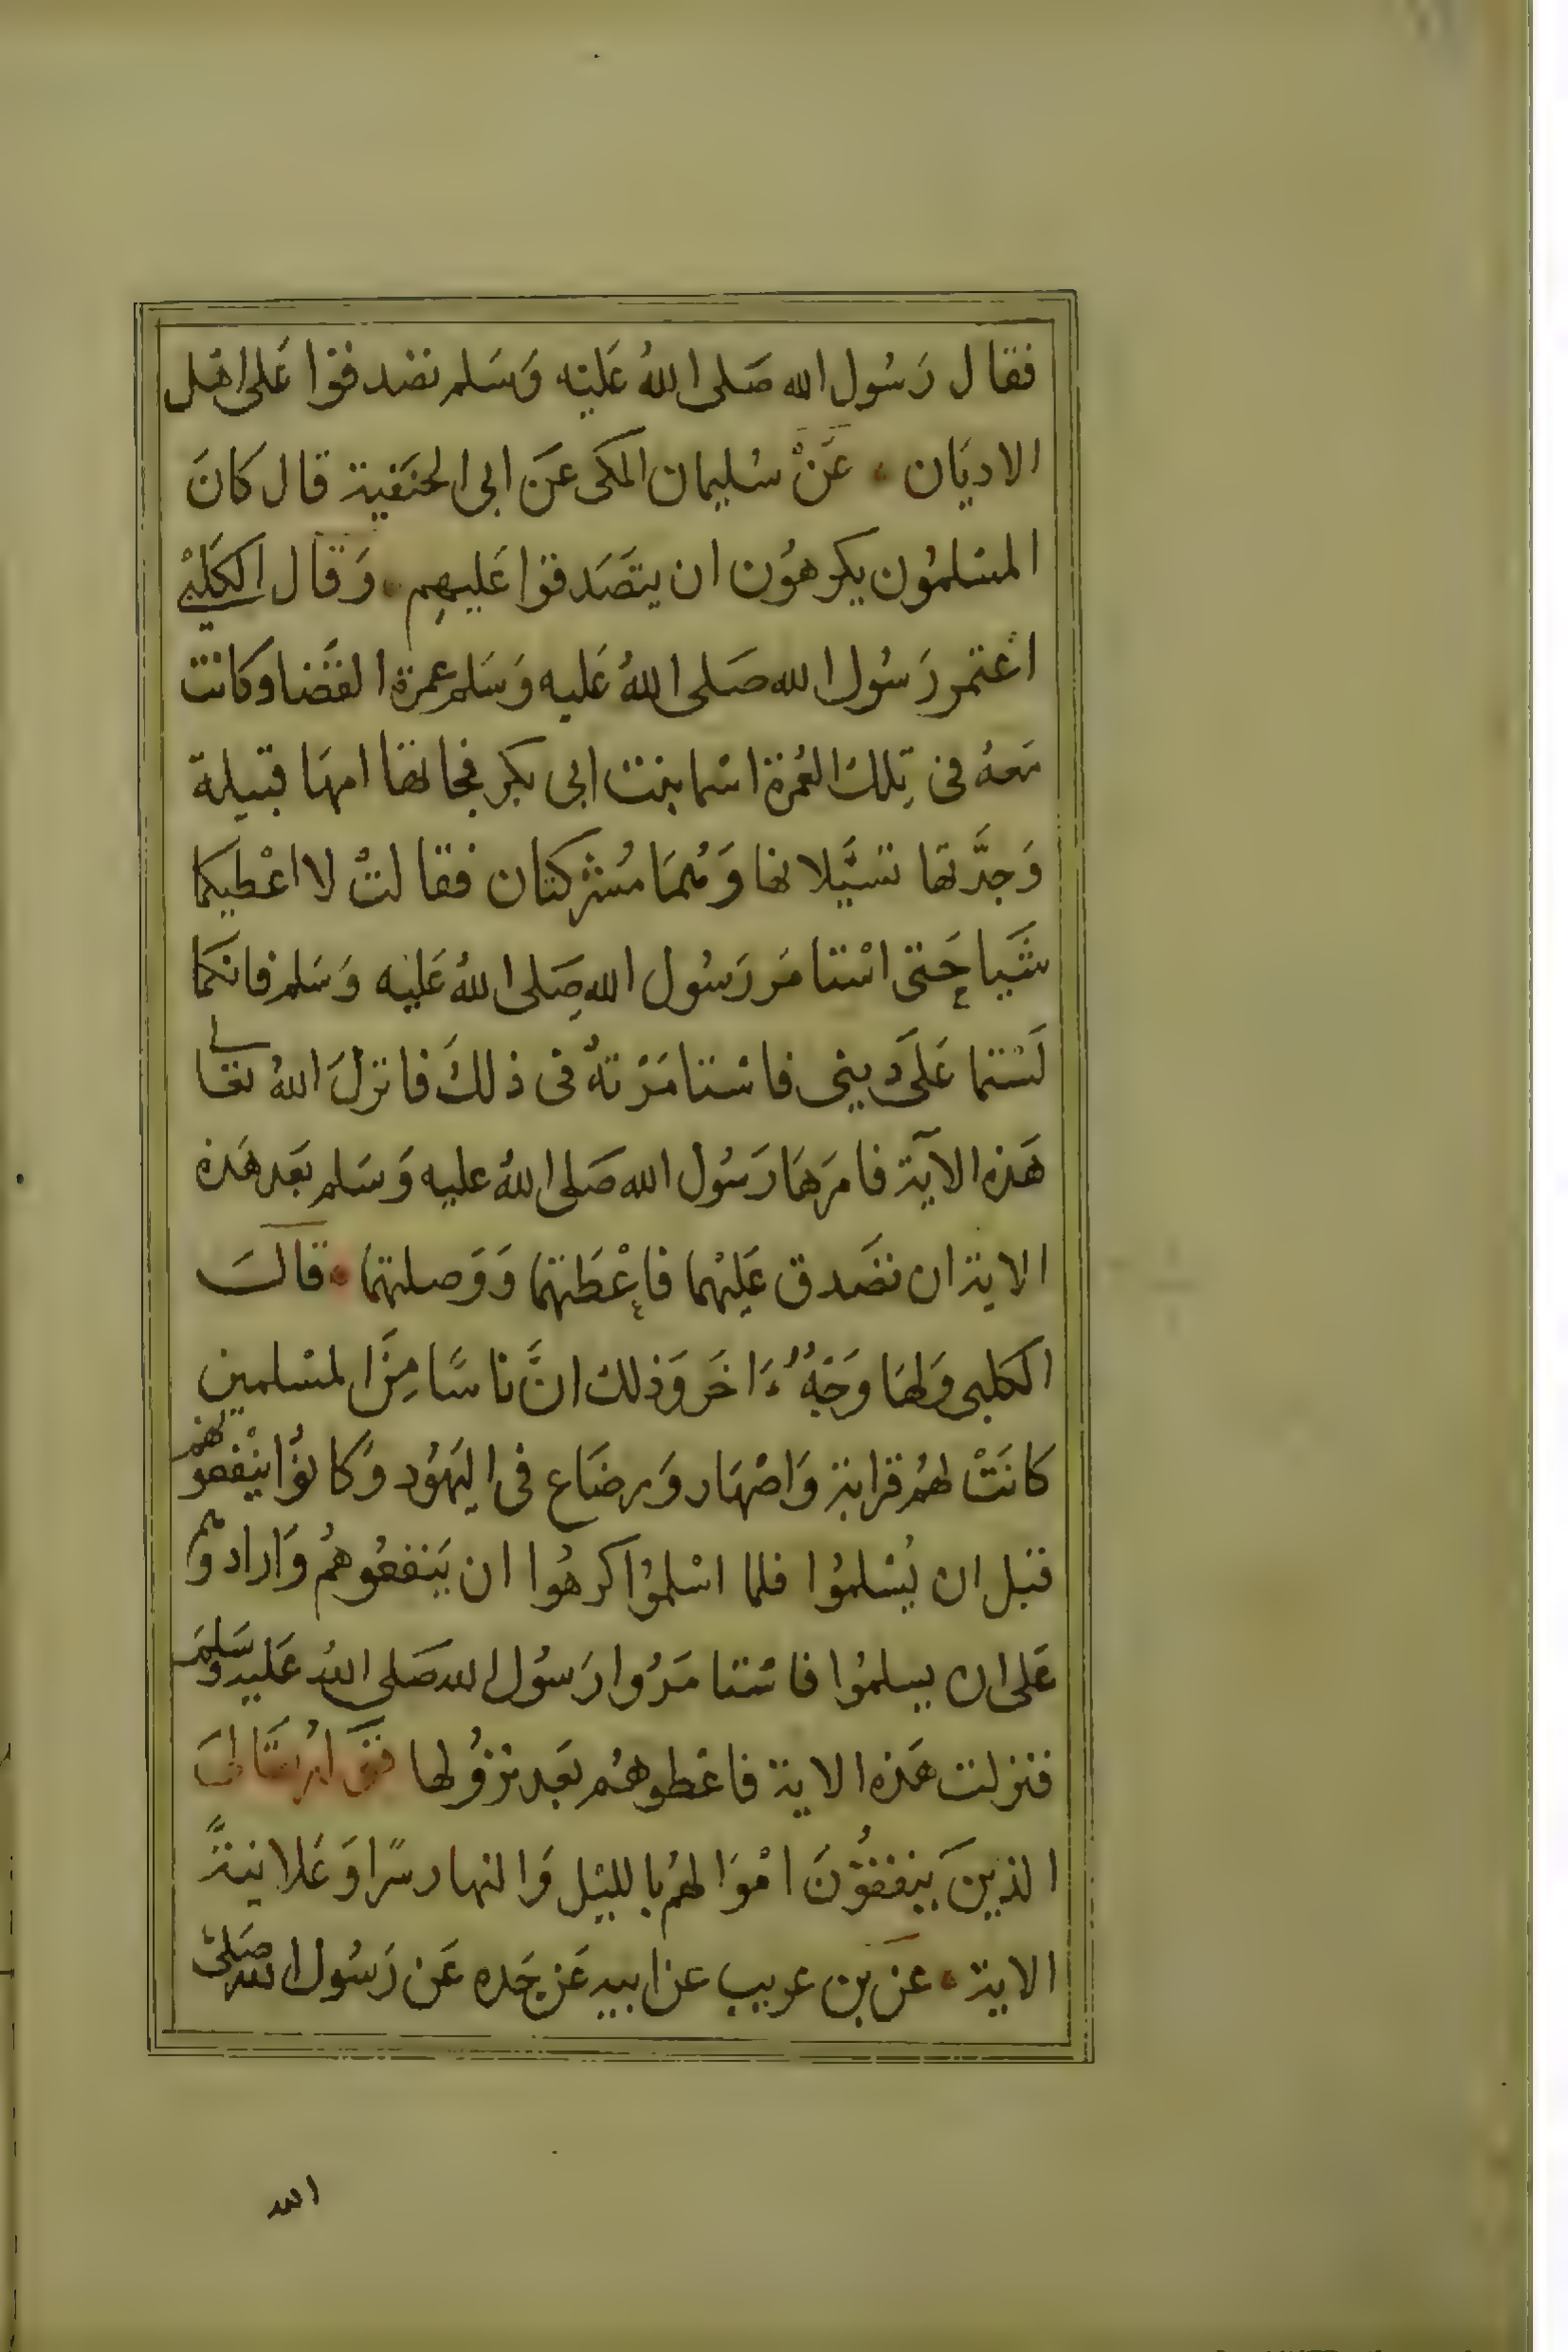 فقال رَسُول الله صَلى اللهُ عَليْه وَسَلم تصَدقوُا عَلى اهْل
الاديَان ۰ عَنْ سُليمان المكى عَن ابى الحنَفية قال كانَ
المسْلمُون يكرهوُن ان يتصَدقوُا عَليهِم ۰ وَقال الكلبْى
اعتمر رَسُول الله صَلى اللهُ عَليه وَسَلم عمرة القضَا وكانت
مَعهُ فى تِلك العُمرة اسْما بنت ابى بكر فجاتها امهَا قتيلة
وَجدَّتها تسَئَلانها وَهُمَا مُشركتان فقالتْ لا اعْطيكما
شَيا حَتى اسْتامَر رَسُول الله صَلى اللهُ عَليْه وَسَلم فانكمَا
لَسْتما عَلَى دينى فاسْتامَرْتهُ فى ذلكَ فانزلَ اللهُ تعَالى
هَذه الآية فامَرهَا رَسُول الله صَلى اللهُ عليه وَسَلم بعَد هَذه
الاية ان تصَدق عَليْهما فاعْطَتهمَا وَوَصلتهمَا ۰ قالَ
الكلبى وَلهَا وَجْهٌ ءَاخَر وَذلك انَّ ناسًا مِنَ المسْلمين
كانَتْ لهُم قرابة وَاصْهَار وَرضَاع فى اليَهُود وَكانوُا ينْفعوُنهُم
قبل ان يُسْلمُوا فلما اسْلموُا كرهُوا ان يَنفعُوهُمْ وَارادوُهم
عَلى ان يسلمُوا فاسْتامَرُوا رَسُول الله صَلى اللهُ عَليه وَسَلمَ
فنزلت هَذه الاية فاعْطوهُم بعَد نزوُلها
الذينَ ينفقوُنَ امْوَالهُم بالليْل وَالنهار سًرا وَعَلانيةً
الاية ۰ عن بن عريب عن ابيه عَن جَده عَن رَسُول الله صَلى
الله